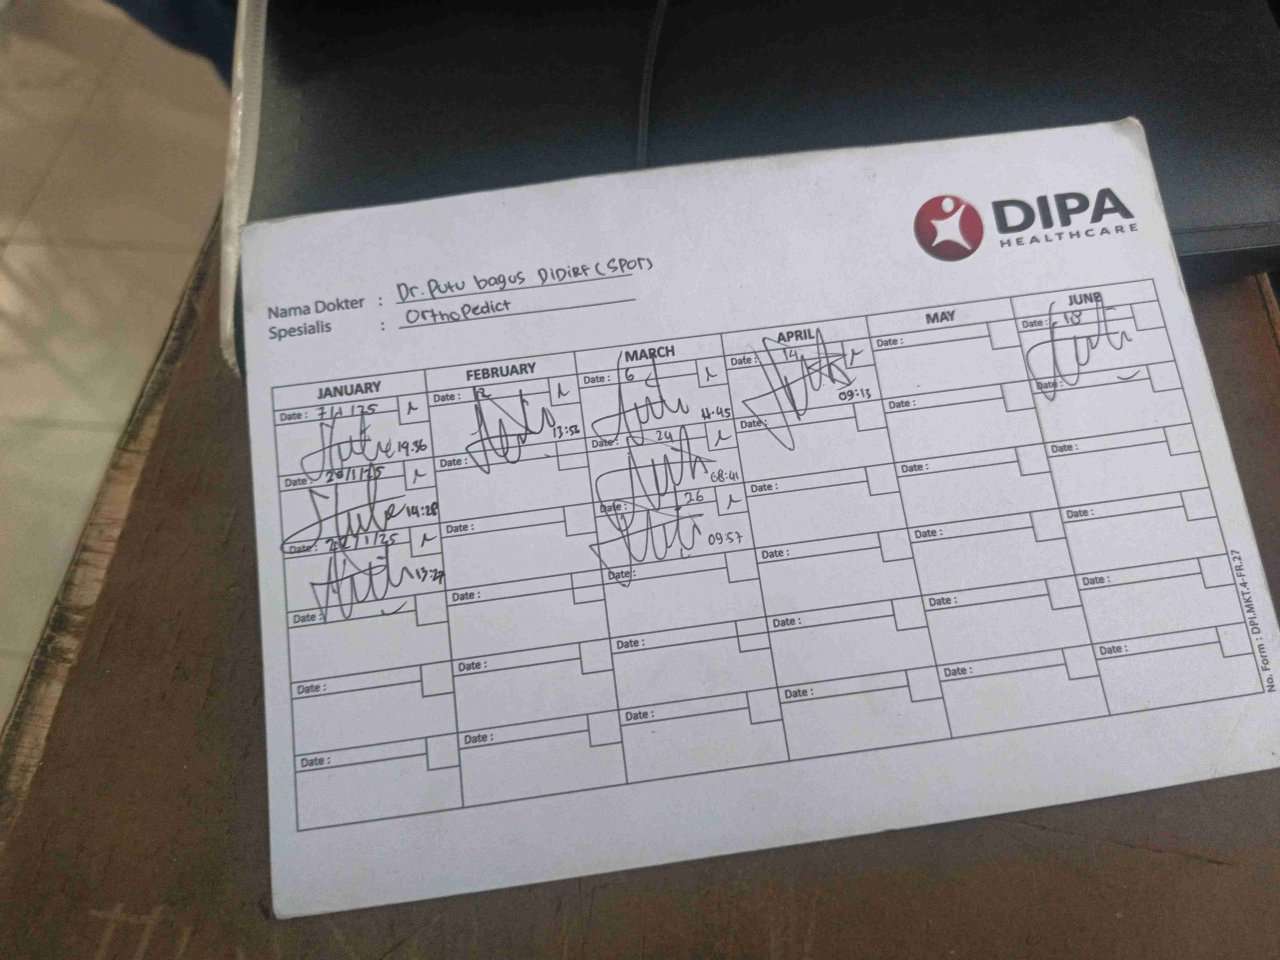 DIPA
HEALTHCARE
Nama Dokter : Dr. Putu bagus DIDIRF (SPOT)
Spesialis : OrthoPedict
JANUARY FEBRUARY MARCH APRIL MAY JUNE
Date : 7/1/25 Date : 12 Date : 6 Date : 14 Date : Date : 18
19:36 13:56 11:45 09:13
Date : 20/1/25 Date : Date : 24 Date : Date : Date :
14:28 08:41
Date : 22/1/25 Date : Date : 26 Date : Date : Date :
13:27 09:57
Date : Date : Date : Date : Date : Date :
Date : Date : Date : Date : Date : Date :
Date : Date : Date : Date : Date : Date :
No. Form : DPI.MKT.4-FR.27